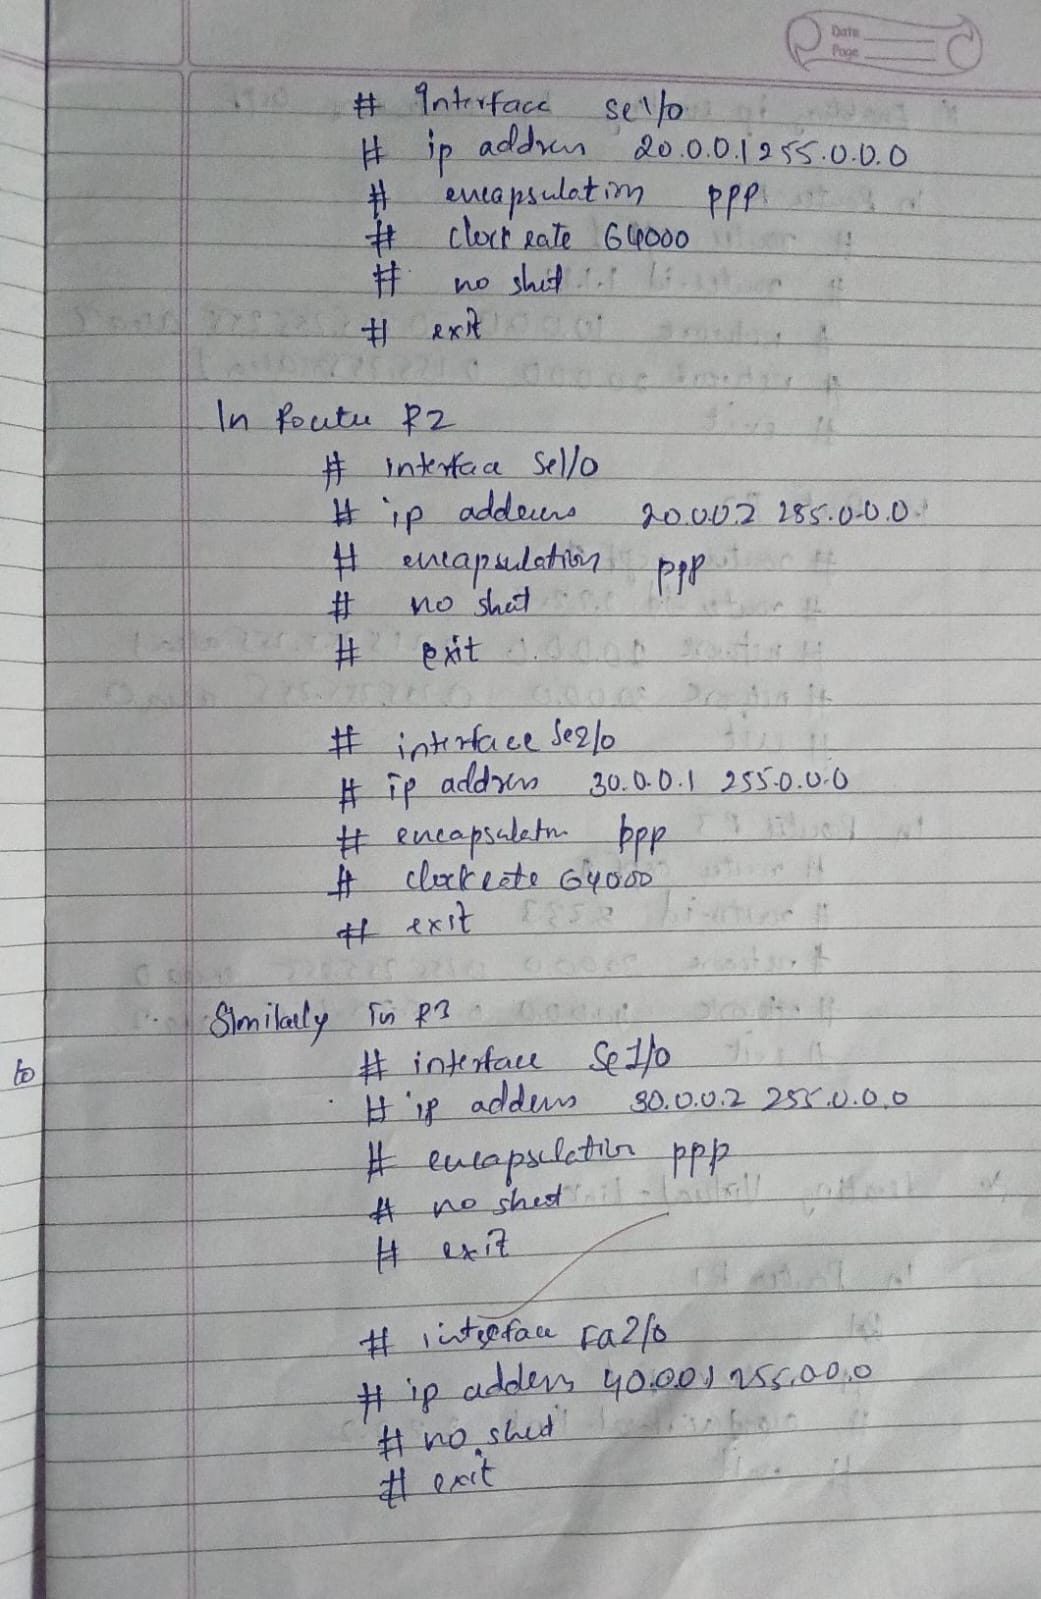 Date
Page
# Interface se1/0
# ip address 20.0.0.1 255.0.0.0
# encapsulation ppp
# clock rate 64000
# no shut
# exit
In Router R2
# interface Se1/0
# ip address 20.0.0.2 255.0.0.0
# encapsulation ppp
# no shut
# exit
# interface Se2/0
# ip address 30.0.0.1 255.0.0.0
# encapsulatn ppp
# clock rate 64000
# exit
Similarly in R3
# interface Se1/0
to
# ip address 30.0.0.2 255.0.0.0
# encapsulation ppp
# no shut
# exit
# interface Fa2/0
# ip address 40.0.0.1 255.0.0.0
# no shut
# exit